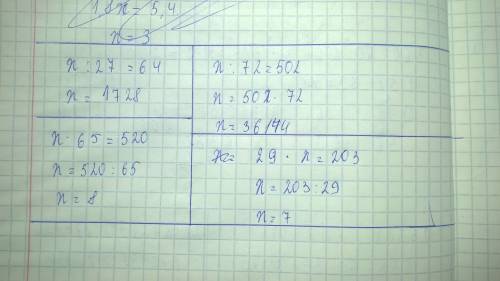 1,8x = 5,4
x = 3
x : 27 = 64
x = 1728
x · 65 = 520
x = 520 : 65
x = 8
x : 72 = 502
x = 502 · 72
x = 36144
29 · x = 203
x = 203 : 29
x = 7